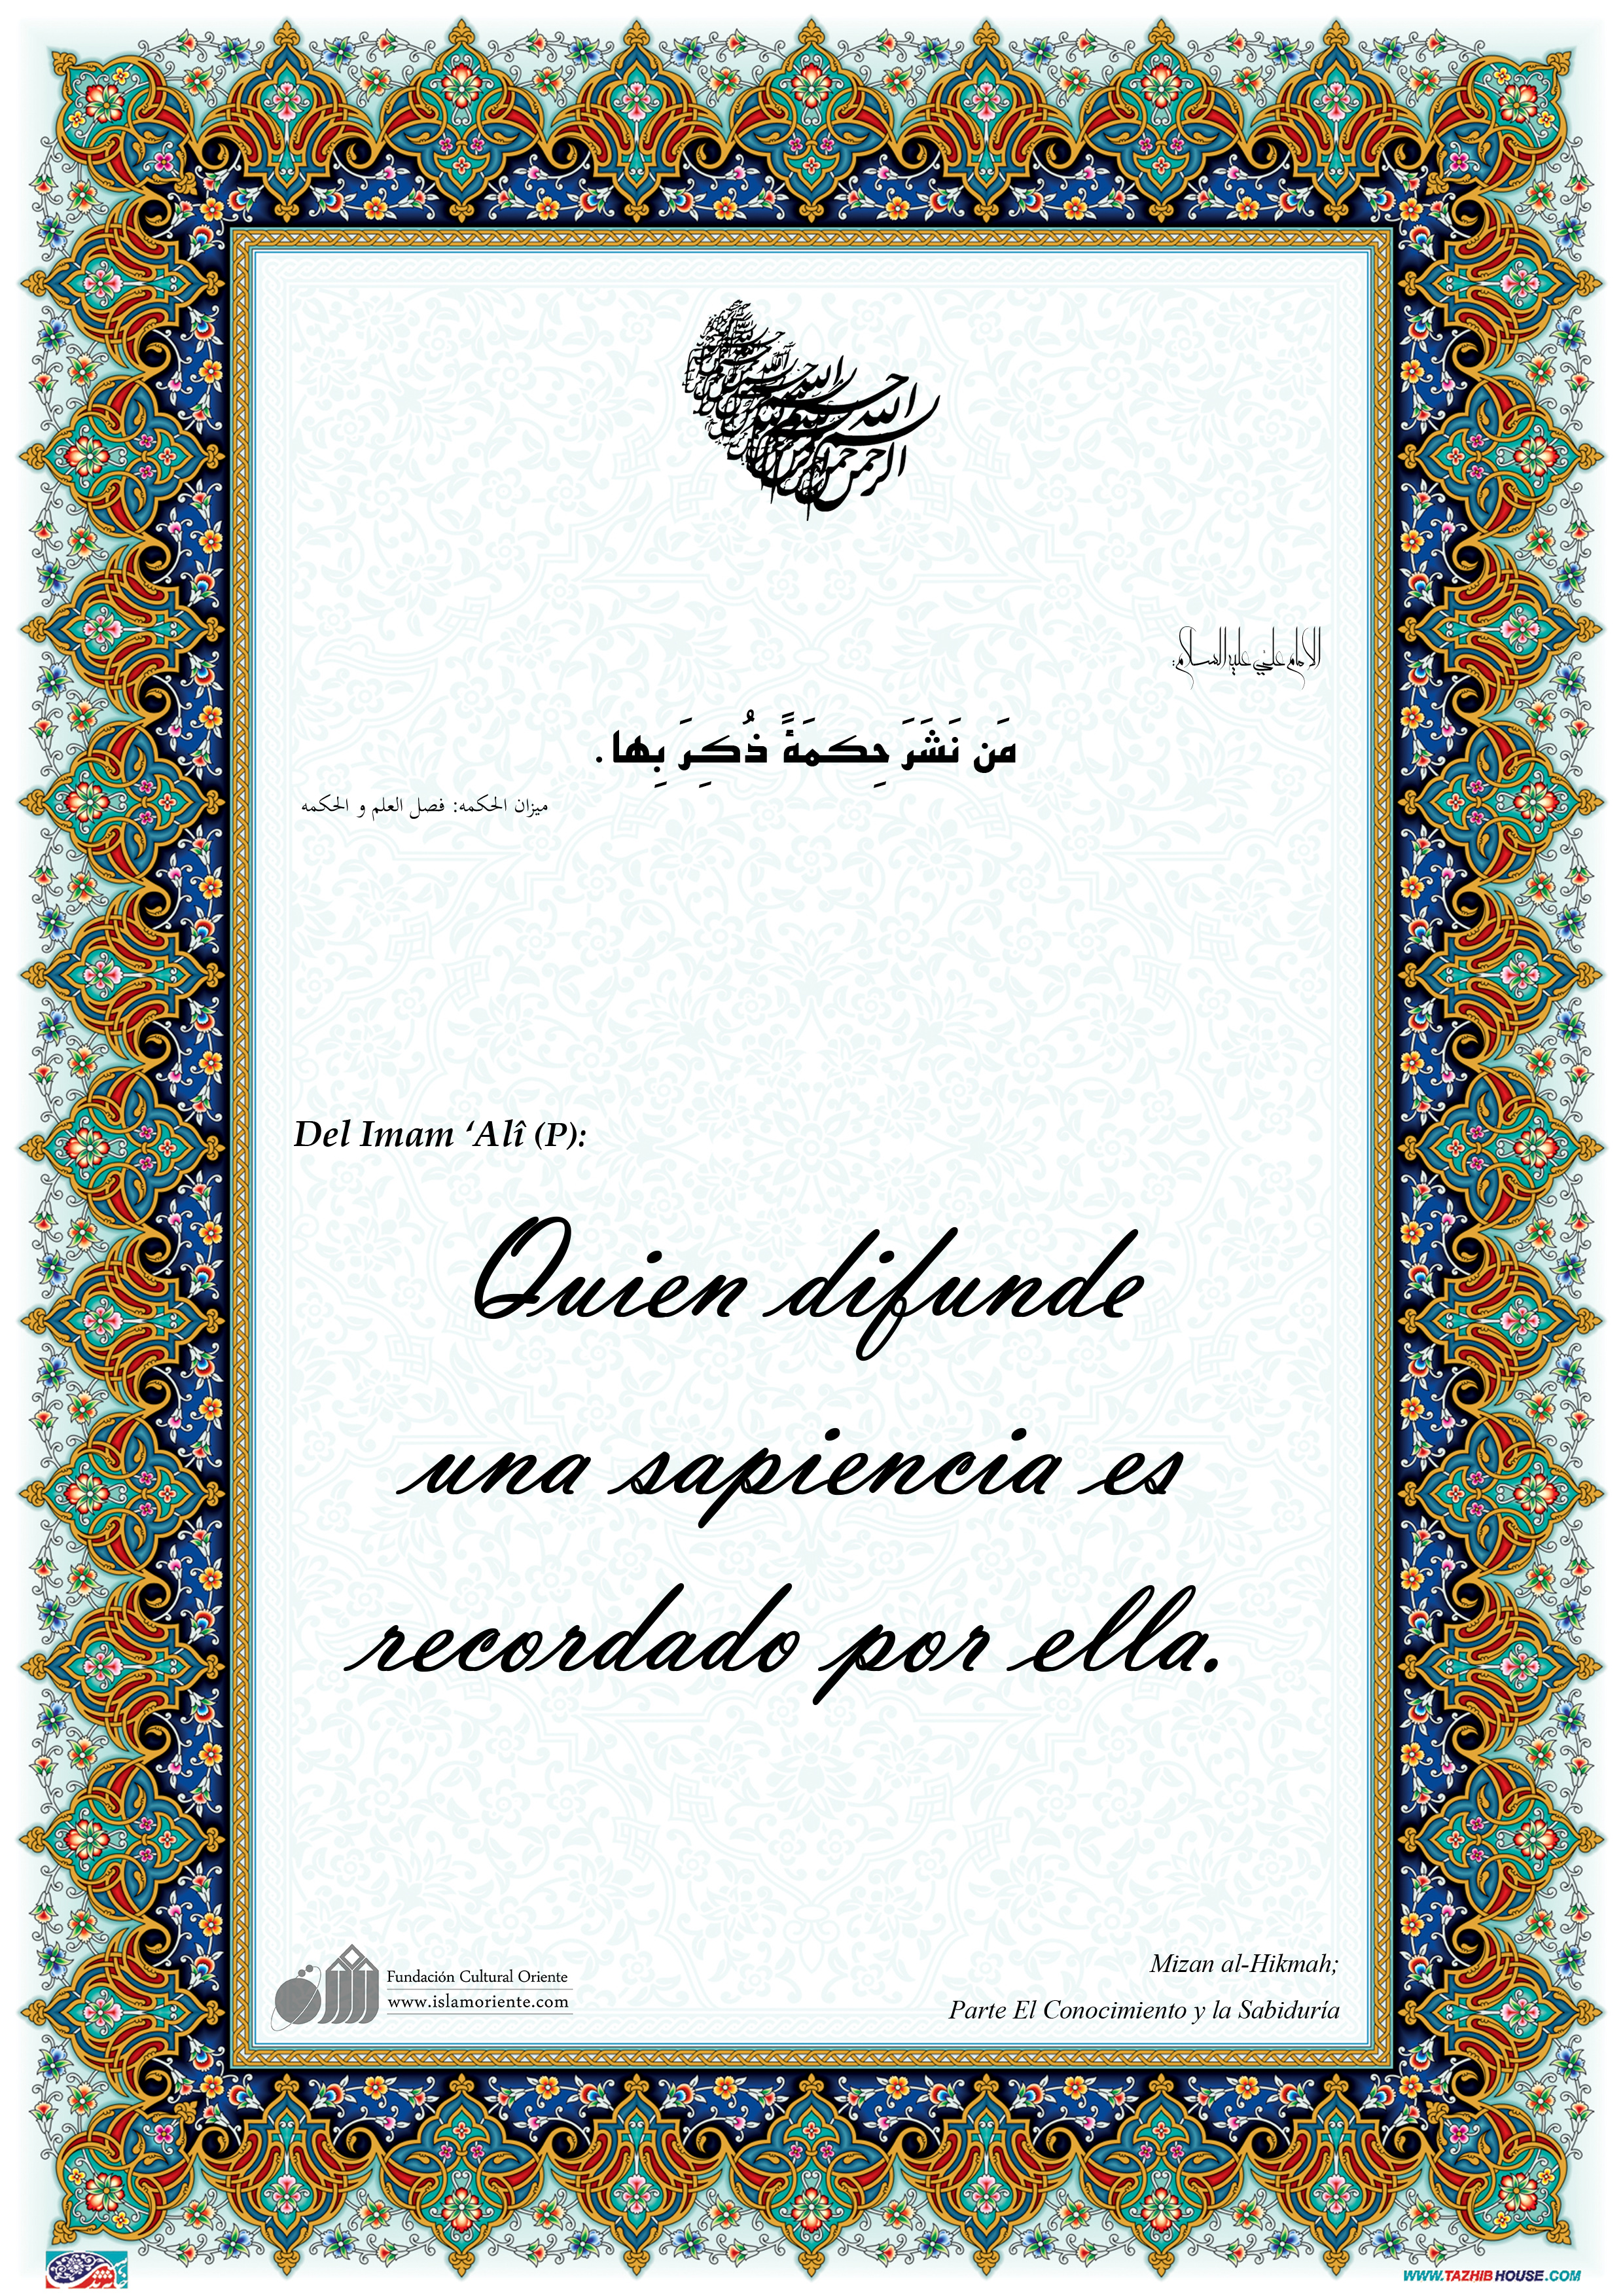 بسم الله الرحمن الرحیم
الإمام علي علیه السلام:
مَن نَشَرَ حِكمَةً ذُكِرَ بِها.
ميزان الحكمه: فصل العلم و الحكمه
Del Imam ‘Alî (P):
Quien difunde
una sapiencia es
recordado por ella.
Mizan al-Hikmah;
Parte El Conocimiento y la Sabiduría
Fundación Cultural Oriente
www.islamoriente.com
WWW.TAZHIBHOUSE.COM